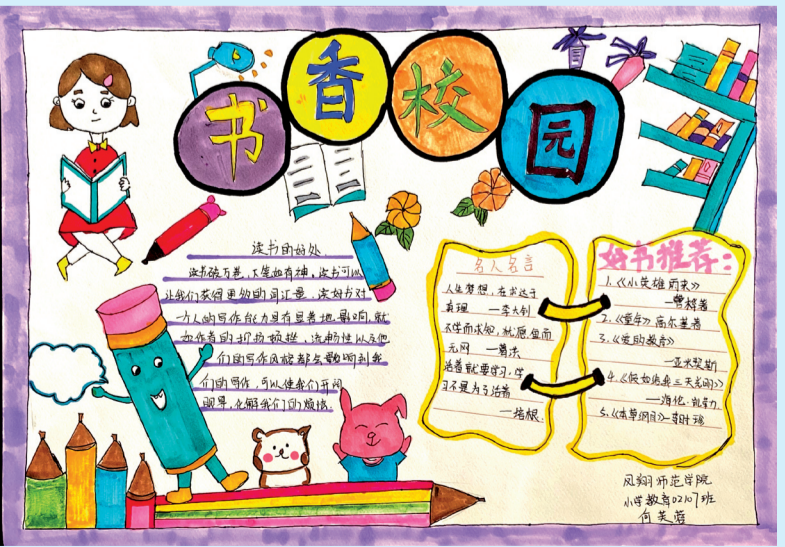 书香校园
读书的好处
读书破万卷，下笔如有神，读书可以
让我们获得更多的词汇量，读好书对
一个人的写作能力具有显著地影响，就
如作者的抑扬顿挫，流畅性以及他
们的写作风格都会影响到我
们的写作，可以使我们开阔
眼界，化解我们的烦恼。
名人名言
人生梦想，在求达于
真理 —李大钊
不学而求知，犹愿鱼而
无网 —葛洪
活着就要学习，学
习不是为了活着
—培根.
好书推荐：
1.《小英雄雨来》
—管桦著
2.《童年》高尔基著
3.《爱的教育》
—亚米契斯
4.《假如给我三天光明》
—海伦·凯勒
5.《本草纲目》—李时珍
凤翔师范学院
小学教育02107班
何芙蓉